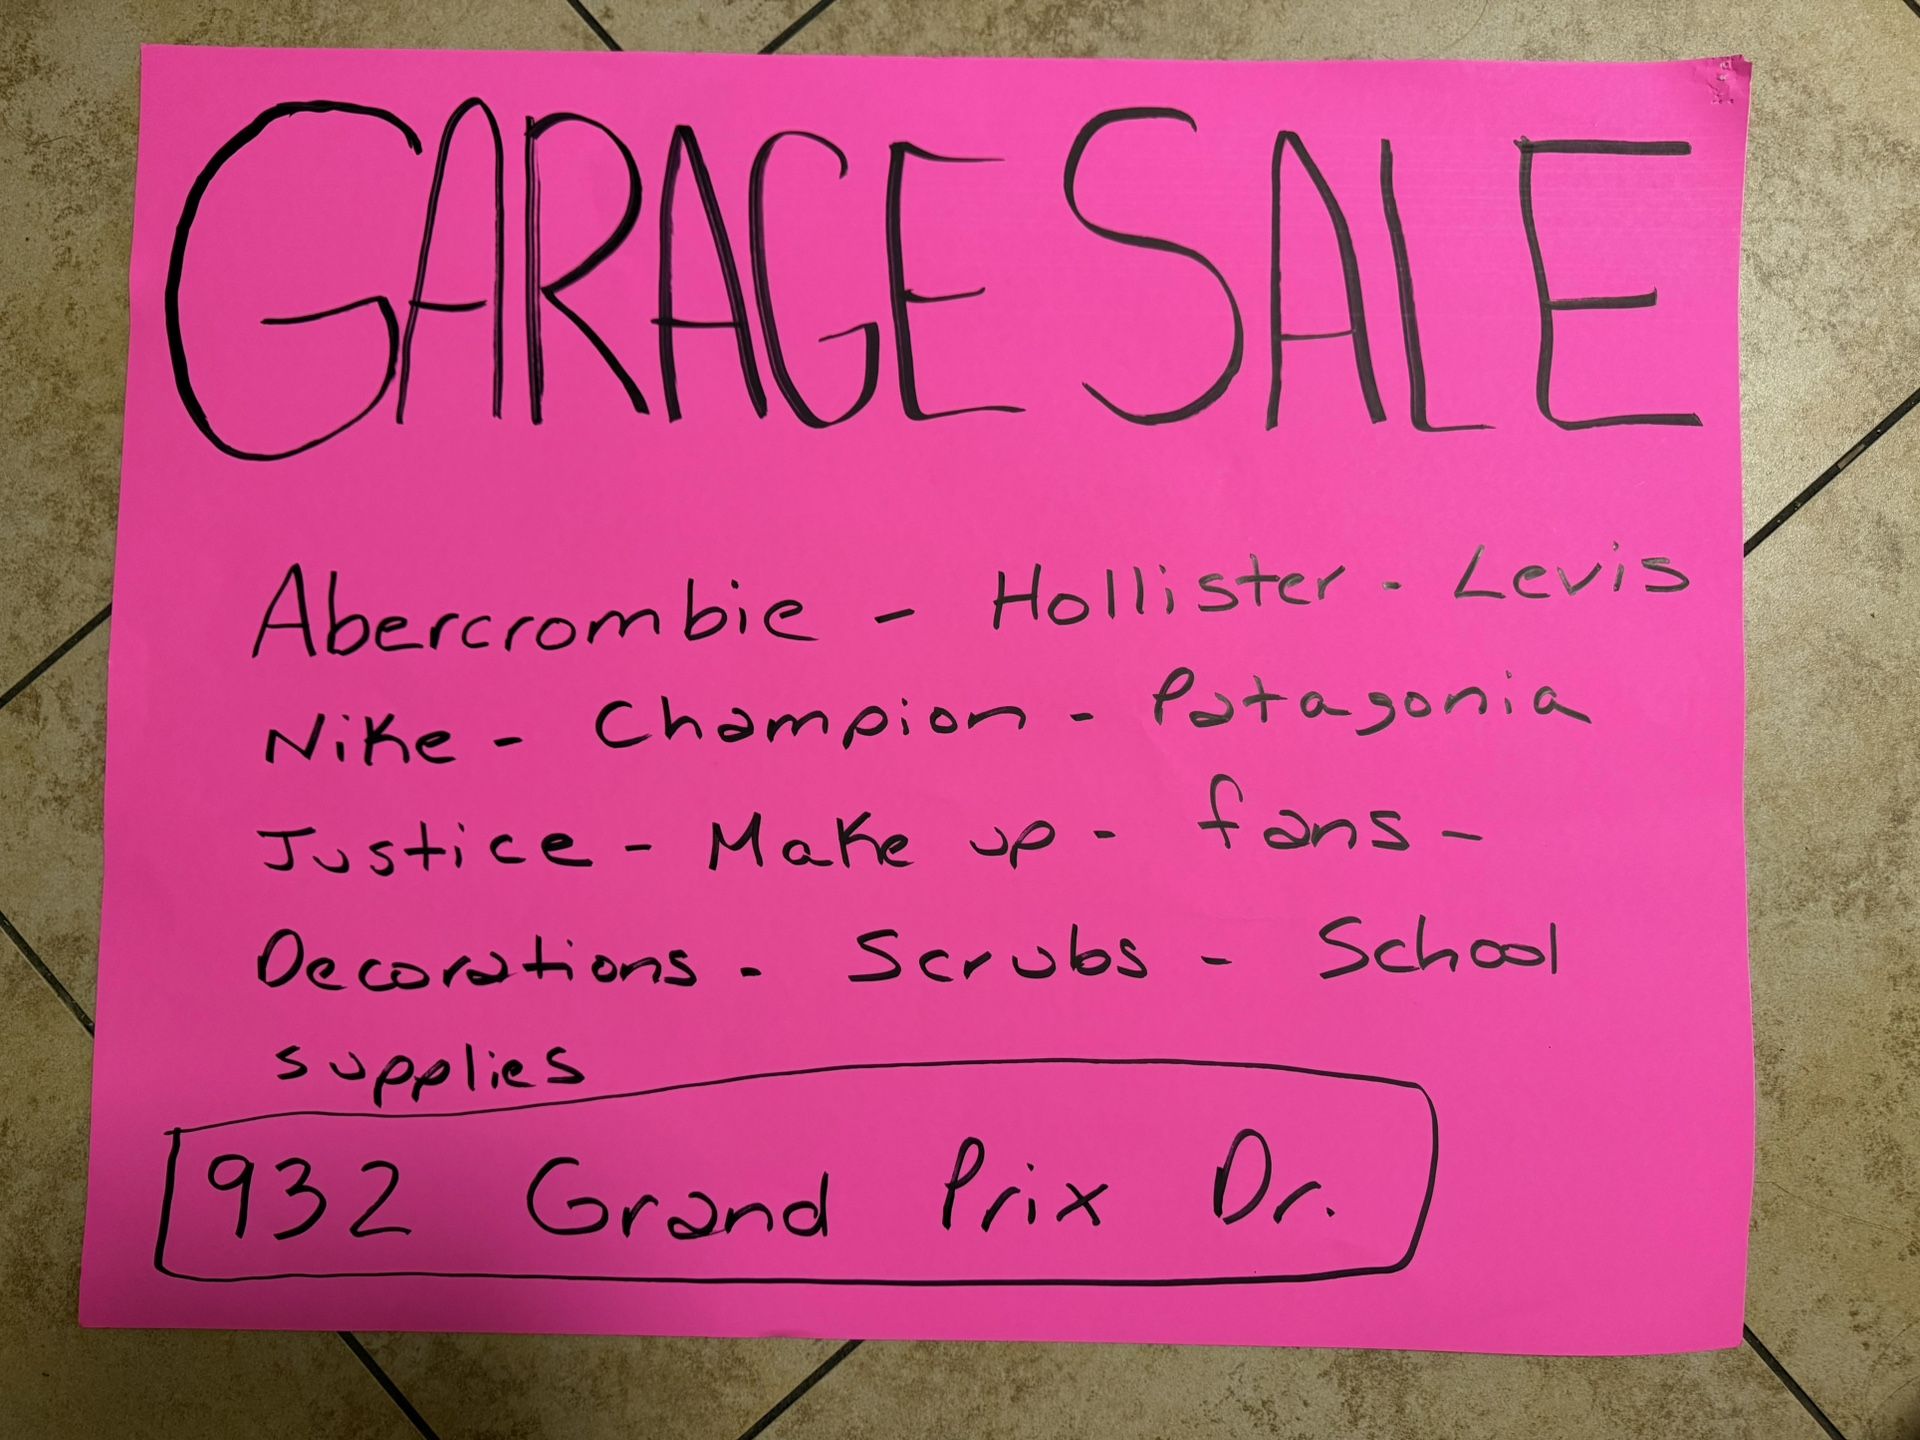 GARAGE SALE
Abercrombie - Hollister - Levis
Nike - Champion - Patagonia
Justice - Make up - fans -
Decorations - Scrubs - School
supplies
932 Grand Prix Dr.